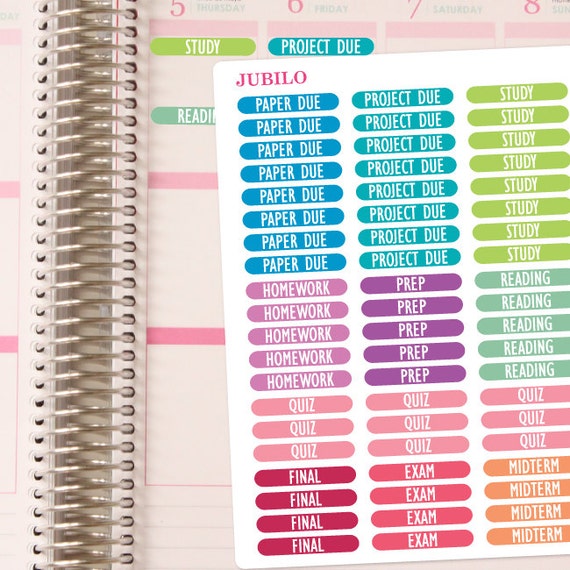 5 THURSDAY 6 FRIDAY 7 SATURDAY 8
STUDY PROJECT DUE
JUBILO
PAPER DUE PROJECT DUE STUDY
PAPER DUE PROJECT DUE STUDY
PAPER DUE PROJECT DUE STUDY
PAPER DUE PROJECT DUE STUDY
PAPER DUE PROJECT DUE STUDY
PAPER DUE PROJECT DUE STUDY
PAPER DUE PROJECT DUE STUDY
PAPER DUE PROJECT DUE STUDY
HOMEWORK PREP READING
HOMEWORK PREP READING
HOMEWORK PREP READING
HOMEWORK PREP READING
HOMEWORK PREP READING
QUIZ QUIZ QUIZ
QUIZ QUIZ QUIZ
QUIZ QUIZ QUIZ
FINAL EXAM MIDTERM
FINAL EXAM MIDTERM
FINAL EXAM MIDTERM
FINAL EXAM MIDTERM